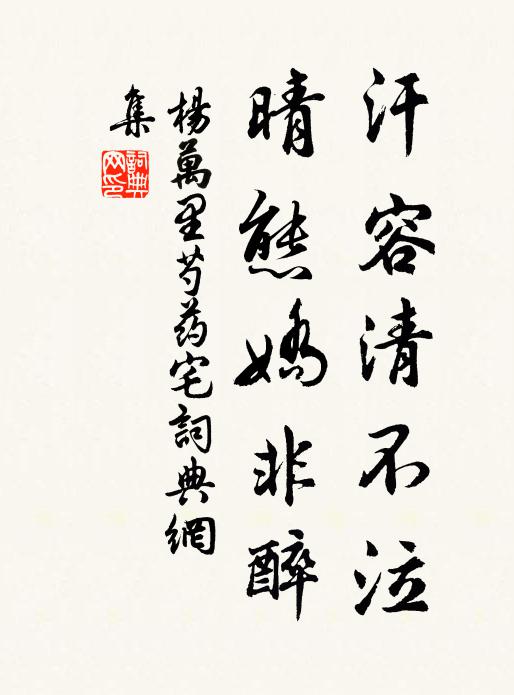 汗容清不泣
晴態嬌非醉
楊萬里芍药宅詞典網
集
詞典
网印